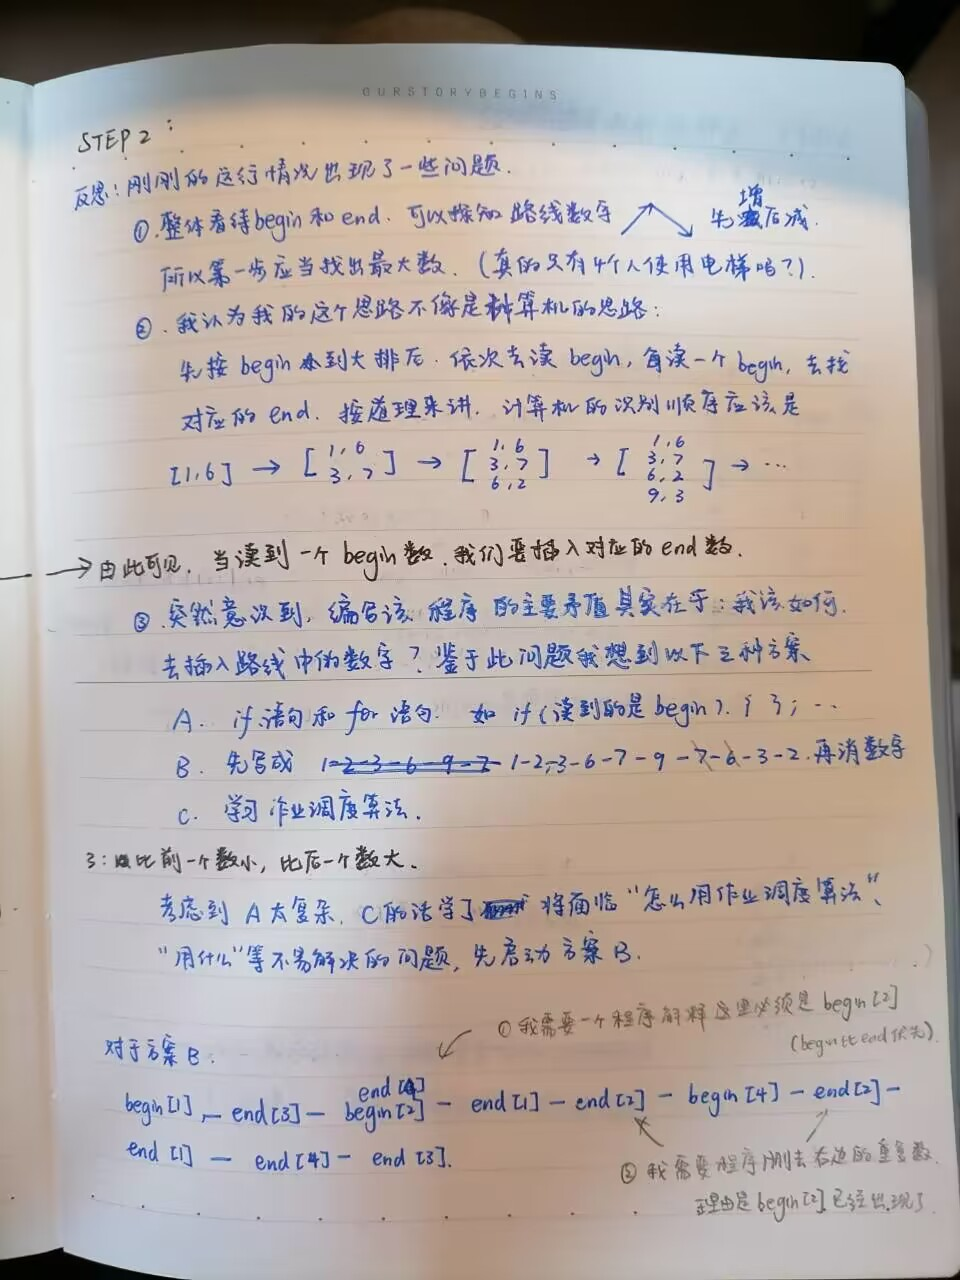 OURSTORYBEGINS
STEP 2:
反思:刚刚的运行情况出现了一些问题.
①.整体看待begin和end.可以探知路线数字 先增后减.
所以第一步应当找出最大数.(真的只有4个人使用电梯吗?).
②.我认为我的这个思路不像是计算机的思路:
先按begin小到大排后.依次去读begin,每读一个begin,去找
对应的end.按道理来讲.计算机的识别顺序应该是
[1,6] → [1,6 3,7] → [1,6 3,7 6,2] → [1,6 3,7 6,2 9,3] → …
→由此可见,当读到一个begin数.我们要插入对应的end数.
③.突然意识到,编写该程序的主要矛盾其实在于:我该如何.
去插入路线中的数字?鉴于此问题我想到以下三种方案
A. if语句和for语句. 如if(读到的是begin).{ };…
B. 先写成 1-2-3-6-9-7 1-2-3-6-7-9-7-6-3-2.再消数字
C. 学习作业调度算法.
3:比前一个数小,比后一个数大.
考虑到A太复杂,C的话学了将面临“怎么用作业调度算法”、
“用什么”等不易解决的问题,先启动方案B.
①我需要一个程序解释这里必须是begin[2]
(begin比end优先).
对于方案B:
end[4]
begin[1]-end[3]-begin[2]-end[1]-end[2]-begin[4]-end[2]-
end[1]-end[4]-end[3].
②我需要程序删去右边的重复数.
理由是begin[2]已经出现了